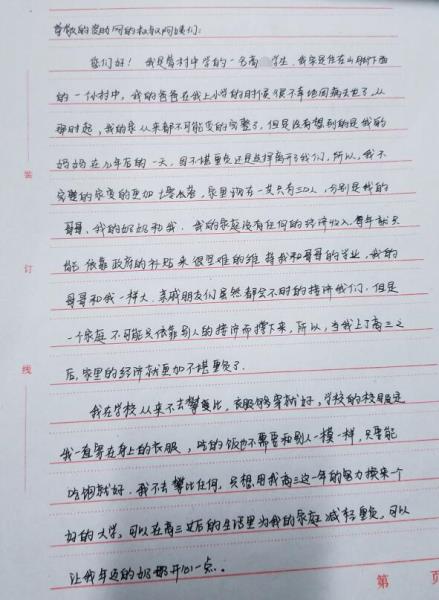 尊敬的资助网的叔叔阿姨们：
您们好！我是营村中学的一名高 学生．我家是住在山脚下面
的一个小村中，我的爸爸在我上小学的时候很不幸地因病去世了．从
那时起，我的家从来都不可能变的完整了，但是没有想到的是我的
妈妈在几年后的一天，因不堪重负还是选择离开了我们．所以，我不
完整的家变的更加 家里现在一共只有三口人，分别是我的
哥哥、我的奶奶和我．我的家庭没有任何的经济收入．每年就只
能依靠政府的补贴来很坚难的维持我和哥哥的学业．我的
哥哥和我一样大．亲戚朋友们虽然都会不时的接济我们．但是
一个家庭不可能只依靠别人的接济而撑下来，所以，当我上了高三之
后，家里的经济就更加不堪重负了．
我在学校从来不去攀比，衣服够穿就好，学校的校服是
我一直穿在身上的衣服，吃的饭也不需要和别人一模一样，只要能
吃饱就好．我不去攀比任何，只想用我高三这一年的努力换来一个
好的大学，可以在高三过后的生活里为我的家庭减轻重负，可以
让我年迈的奶奶开心一点．
装
订
线
第 页